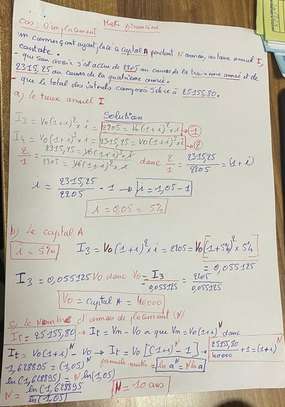 Math financière
Cas: d'emplacement
un commerçant ayant placé le capital A pendant N années, au taux annuel I,
constate.
- qu'on avait d'accru de 2205 au cours de la troisième année et de
2315,25 au cours de la quatrième année
- que le total des intérêts composés s'élève à 25155,80.
a) le taux annuel I
Solution
I3 = V0(1+i)² × i = 2205 = V0(1+i)² × i → 1
I4 = V0(1+i)³ × i = 2315,25 = V0(1+i)³ × i → 2
2/1 = 2315,25/2205 = V0(1+i)³ × i / V0(1+i)² × i donc 2/1 = 2315,25/2205 = (1+i)
i = 2315,25/2205 - 1 → i = 1,05 - 1
i = 0,05 = 5%
b) le capital A
i = 5% I3 = V0(1+i)² × i = 2205 = V0[(1+5%)² × 5%]
= 0,055125
I3 = 0,055125 V0 donc V0 = I3/0,055125 = 2205/0,055125
V0 = capital A = 40000
le Nombre d'années de placement (N)
It = 25155,80 → It = Vn - V0 a que Vn = V0(1+i)^N donc
It = V0(1+i)^N - V0 → It = V0[(1+i)^N - 1] → 25155,80/40000 + 1 = (1+i)^N
1,628895 = (1,05)^N ln a^N = N ln a
ln(1,628895) = N ln(1,05)
N = ln(1,628895)/ln(1,05) N = 10 ans